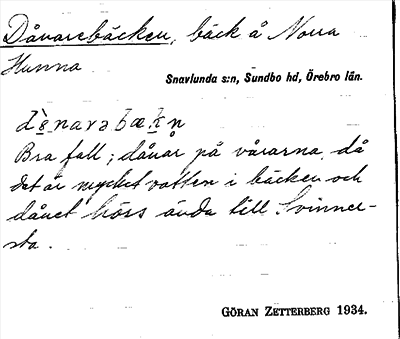 Dånarebäcken, bäck å Norra
Hunna
Snavlunda s:n, Sundbo hd, Örebro län.
Bra fall; dånar på vårarna, då
det är mycket vatten i bäcken och
dånet hörs ända till Svinner-
sta.
GÖRAN ZETTERBERG 1934.